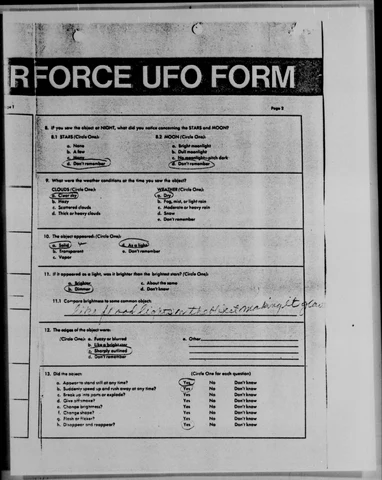 RFORCE UFO FORM
Page 2
8. If you saw the object at NIGHT, what did you notice concerning the STARS and MOON?
8.1 STARS (Circle One): 8.2 MOON (Circle One):
a. None a. Bright moonlight
b. A few b. Dull moonlight
c. Many c. No moonlight—pitch dark
d. Don't remember d. Don't remember
9. What were the weather conditions at the time you saw the object?
CLOUDS (Circle One): WEATHER (Circle One):
a. Clear sky a. Dry
b. Hazy b. Fog, mist, or light rain
c. Scattered clouds c. Moderate or heavy rain
d. Thick or heavy clouds d. Snow
e. Don't remember
10. The object appeared: (Circle One):
a. Solid d. As a light
b. Transparent e. Don't remember
c. Vapor
11. If it appeared as a light, was it brighter than the brightest stars? (Circle One):
a. Brighter c. About the same
b. Dimmer d. Don't know
11.1 Compare brightness to some common object:
like flood lights on the making it glow
12. The edges of the object were:
(Circle One): a. Fuzzy or blurred e. Other
b. Like a bright star
c. Sharply outlined
d. Don't remember
13. Did the object: (Circle One for each question)
a. Appear to stand still at any time? Yes No Don't know
b. Suddenly speed up and rush away at any time? Yes No Don't know
c. Break up into parts or explode? Yes No Don't know
d. Give off smoke? Yes No Don't know
e. Change brightness? Yes No Don't know
f. Change shape? Yes No Don't know
g. Flash or flicker? Yes No Don't know
h. Disappear and reappear? Yes No Don't know